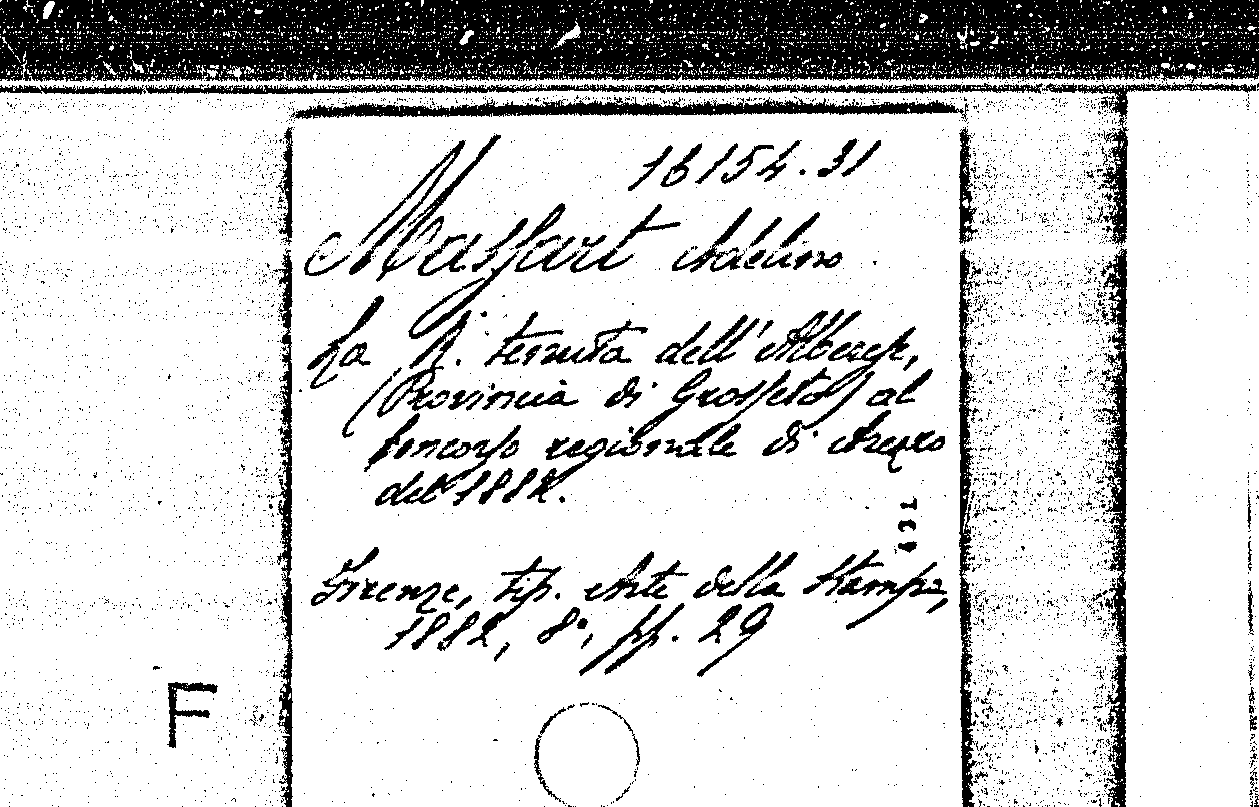 16154.31
Massart Adelino
La R. tenuta dell'Alberese,
(Provincia di Grosseto) al
Concorso regionale di Arezzo
del 1882.
Firenze, tip. Arte della Stampa,
1882, 8°, pp. 29
F